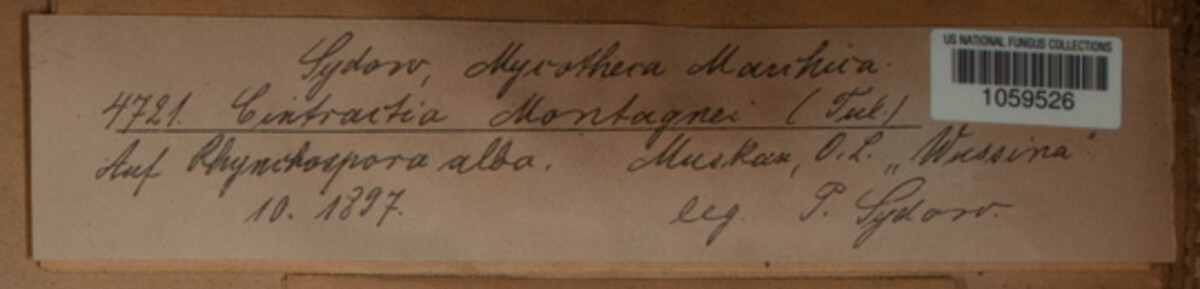 Sydow, Mycotheca Marchica.
4721. Cintractia Montagnei (Tul.)
Auf Rhynchospora alba. Muskau, O.L. „Wussina"
10. 1897. leg. P. Sydow.
US NATIONAL FUNGUS COLLECTIONS
1059526